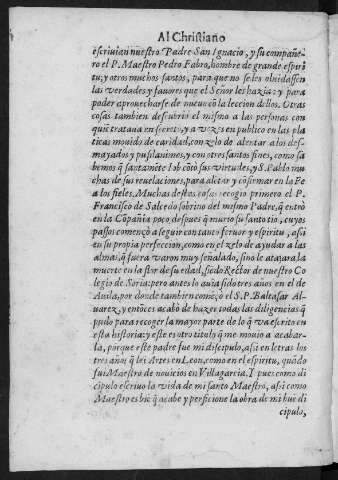 Al Christiano
escriuian nuestro Padre San Ignacio, y su compañe-
ro el P. Maestro Pedro Fabro, hombre de grande espiri
tu; y otros muchos santos, para que no se les oluidassen
las verdades y fauores que el Señor les hazia: y para
poder aprouecharse de nueuo cō la leccion dellos. Otras
cosas tambien descubrio el mismo a las personas con
quiē trataua en secreto, y a vezes en publico en las pla
ticas mouido de caridad, con zelo de alentar a los des-
mayados y pusilanimes, y con otros santos fines, como sa
bemos q̄ santamēte Iob cōtò sus virtudes, y S. Pablo mu
chas de sus reuelaciones, para alētar y cōfirmar en la Fe
a los fieles. Muchas destas cosas recogio primero el P.
Francisco de Salcedo sobrino del mismo Padre, q̄ entrò
en la Cōpañia poco despues q̄ murio su santo tio, cuyos
passos començò a seguir con tanto feruor y espiritu, assi
en su propia perfeccion, como en el zelo de ayudar a las
almas, q̄ fuera varon muy señalado, sino le atajara la
muerte en la flor de su edad, siēdo Rector de nuestro Co
legio de Soria: pero antes lo auia sido tres años en el de
Auila, por donde tambien comēçò el S. P. Baltasar Al
uarez, y entōces acabò de hazer todas las diligencias q̄
pudo para recoger la mayor parte de lo q̄ va escrito en
esta historia: y este es otro titulo q̄ me mouio a acabar-
la, porque este padre fue mi discipulo, assi en letras los
tres años q̄ lei Artes en Leon, como en el espiritu, quādo
fui Maestro de nouicios en Villagarcia. Y pues como di
cipulo escriuo la vida de mi santo Maestro, assi como
Maestro es biē q̄ acabe y perficione la obra de mi buē di
cipulo,